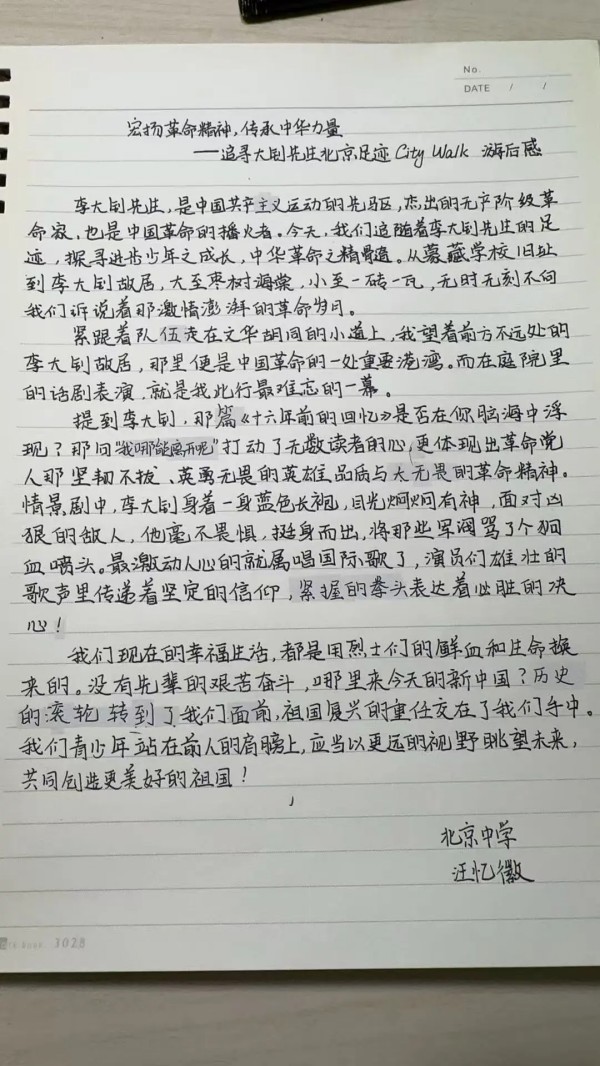 No.
DATE / /
宏扬革命精神,传承中华力量
——追寻大钊先生北京足迹 City Walk 游后感
李大钊先生,是中国共产主义运动的先驱,杰出的无产阶级革
命家,也是中国革命的播火者。今天,我们追随着李大钊先生的足
迹,探寻进步少年之成长,中华革命之精髓。从蒙藏学校旧址
到李大钊故居,大至枣树海棠,小至一砖一瓦,无时无刻不向
我们诉说着那激情澎湃的革命岁月。
紧跟着队伍走在文华胡同的小道上,我望着前方不远处的
李大钊故居,那里便是中国革命的一处重要港湾。而在庭院里
的话剧表演,就是我此行最难忘的一幕。
提到李大钊,那篇《十六年前的回忆》是否在你脑海中浮
现?那问“我哪能离开呢”打动了无数读者的心,更体现出革命党
人那坚韧不拔、英勇无畏的英雄品质与大无畏的革命精神。
情景剧中,李大钊身着一身蓝色长袍,目光炯炯有神,面对凶
狠的敌人,他毫不畏惧,挺身而出,将那些军阀骂了个狗
血喷头。最激动人心的就属唱国际歌了,演员们雄壮的
歌声里传递着坚定的信仰,紧握的拳头表达着必胜的决
心!
我们现在的幸福生活,都是用烈士们的鲜血和生命换
来的。没有先辈的艰苦奋斗,哪里来今天的新中国?历史
的滚轮转到了我们面前,祖国复兴的重任交在了我们手中。
我们青少年站在前人的肩膀上,应当以更远的视野眺望未来,
共同创造更美好的祖国!
北京中学
汪忆徽
3028